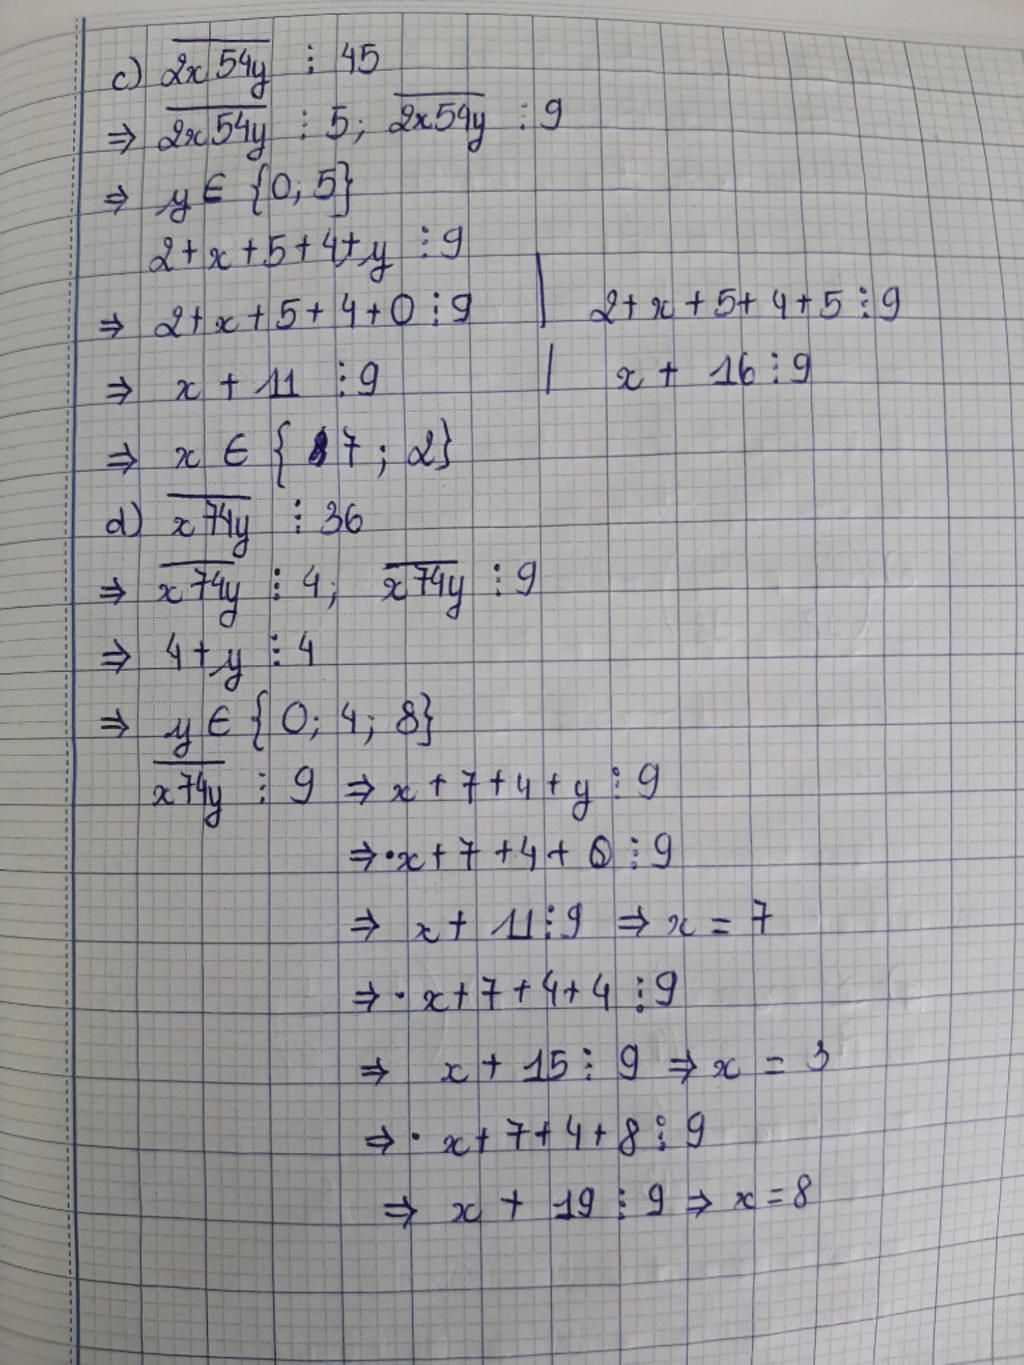 c) \overline{2x54y} ⋮ 45
⇒ \overline{2x54y} ⋮ 5; \overline{2x54y} ⋮ 9
⇒ y ∈ {0; 5}
2+x+5+4+y ⋮ 9
⇒ 2+x+5+4+0 ⋮ 9 | 2+x+5+4+5 ⋮ 9
⇒ x + 11 ⋮ 9 | x + 16 ⋮ 9
⇒ x ∈ { 7 ; 2}
d) \overline{x74y} ⋮ 36
⇒ \overline{x74y} ⋮ 4; \overline{x74y} ⋮ 9
⇒ 4+y ⋮ 4
⇒ y ∈ {0; 4; 8}
\overline{x74y} ⋮ 9 ⇒ x+7+4+y ⋮ 9
⇒ • x+7+4+0 ⋮ 9
⇒ x+ 11 ⋮ 9 ⇒ x = 7
⇒ • x+7+4+4 ⋮ 9
⇒ x + 15 ⋮ 9 ⇒ x = 3
⇒ • x+7+4+8 ⋮ 9
⇒ x + 19 ⋮ 9 ⇒ x = 8